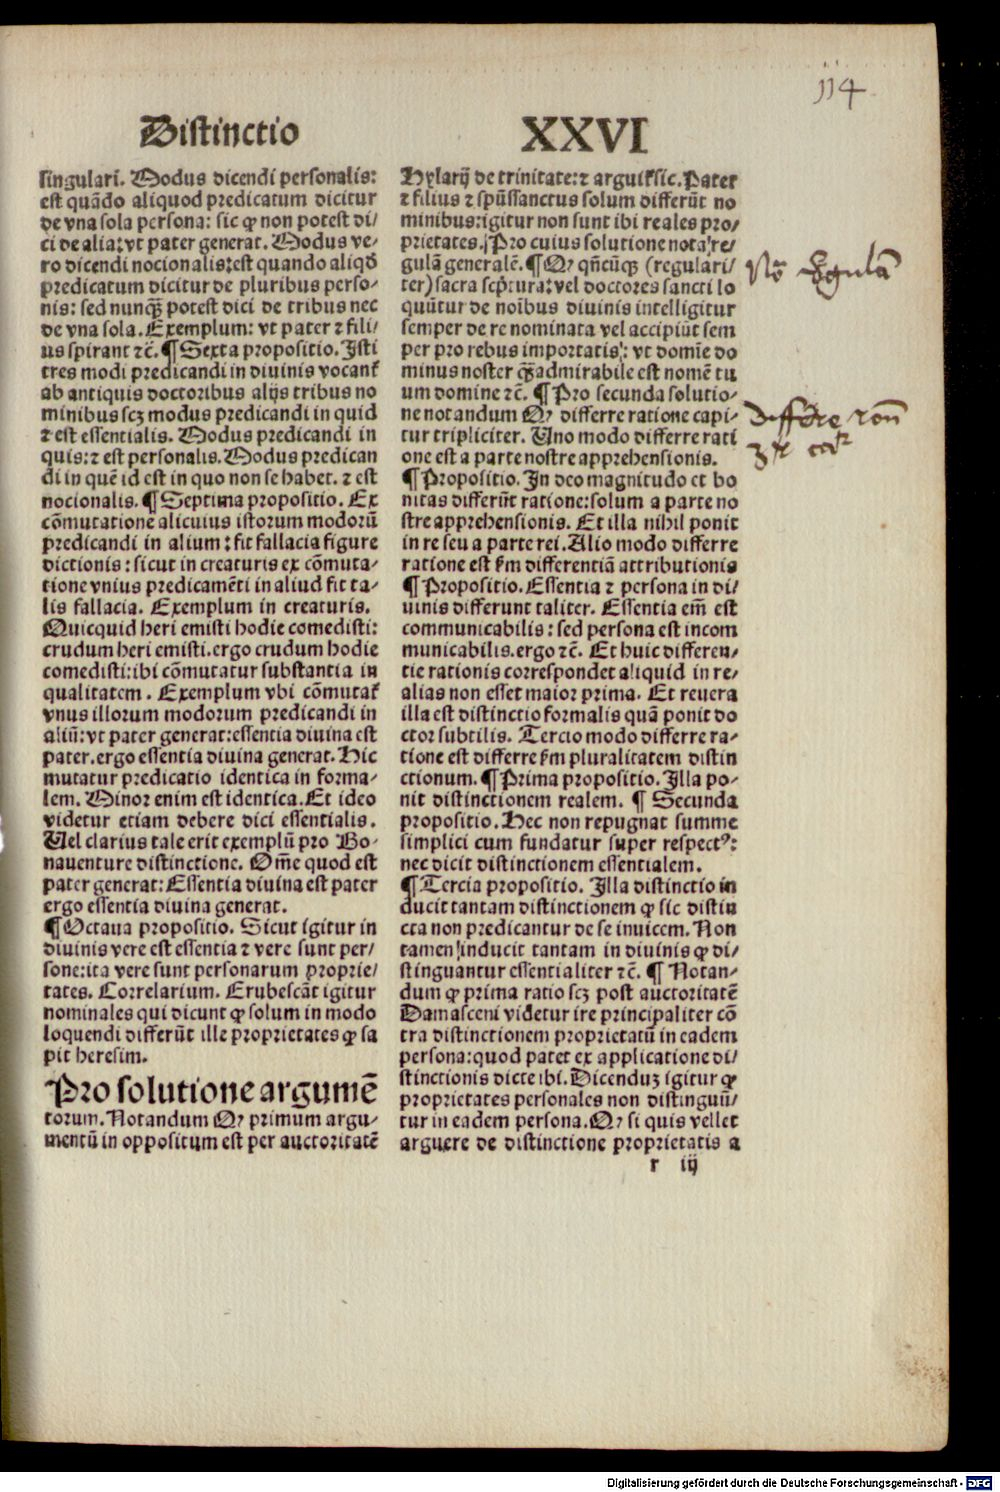 114
Distinctio XXVI
singulari. Modus dicendi personalis:
est quãdo aliquod predicatum dicitur
de vna sola persona: sic ꝙ non potest di/
ci de alia: vt pater generat. Modus ve/
ro dicendi nocionalis: est quando aliqđ
predicatum dicitur de pluribus perso/
nis: sed nunqꝫ potest dici de tribus nec
de vna sola. Exemplum: vt pater ⁊ fili/
us spirant ⁊c̃. ¶ Sexta propositio. Isti
tres modi predicandi in diuinis vocanť
ab antiquis doctoribus alijs tribus no
minibus scꝫ modus predicandi in quid
⁊ est essentialis. Modus predicandi in
quis: ⁊ est personalis. Modus predican
di in quẽ id est in quo non se habet. ⁊ est
nocionalis. ¶ Septima propositio. Ex
cõmutatione alicuius istorum modorũ
predicandi in alium: fit fallacia figure
dictionis: sicut in creaturis ex cõmuta-
tione vnius predicamẽti in aliud fit ta-
lis fallacia. Exemplum in creaturis.
Quicquid heri emisti hodie comedisti:
crudum heri emisti. ergo crudum hodie
comedisti: ibi cõmutatur substantia in
qualitatem. Exemplum vbi cõmutať
vnus illorum modorum predicandi in
aliũ: vt pater generat: essentia diuina est
pater. ergo essentia diuina generat. Hic
mutatur predicatio identica in forma-
lem. Minor enim est identica. Et ideo
videtur etiam debere dici essentialis.
Uel clarius tale erit exemplũ pro Bo-
nauenture distinctione. Om̃e quod est
pater generat: Essentia diuina est pater
ergo essentia diuina generat.
¶ Octaua propositio. Sicut igitur in
diuinis vere est essentia ⁊ vere sunt per/
sone: ita vere sunt personarum proprie/
tates. Correlarium. Erubescãt igitur
nominales qui dicunt ꝙ solum in modo
loquendi differũt ille proprietates ꝙ sa
pit heresim.
Pro solutione argumẽ
torum. Notandum Qꝫ primum argu-
mentũ in oppositum est per auctoritatẽ
Hylarij de trinitate: ⁊ arguiť sic. Pater
⁊ filius ⁊ spũssanctus solum differũt no
minibus: igitur non sunt ibi reales pro/
prietates. Pro cuius solutione nota re/
gulã generalẽ. ¶ Qꝫ qñcũqꝫ (regulari/
ter) sacra scp̃tura: vel doctores sancti lo
quũtur de noĩbus diuinis intelligitur
semper de re nominata vel accipiũt sem
per pro rebus importatis: vt domĩe do
minus noster qꝫ admirabile est nomẽ tu
um domine ⁊c̃. ¶ Pro secunda solutio-
ne notandum Qꝫ differre ratione capi-
tur tripliciter. Uno modo differre rati
one est a parte nostre apprehensionis.
¶ Propositio. In deo magnitudo et bo
nitas differũt ratione: solum a parte no
stre apprehensionis. Et illa nihil ponit
in re seu a parte rei. Alio modo differre
ratione est ẜm differentiã attributionis
¶ Propositio. Essentia ⁊ persona in di/
uinis differunt taliter. Essentia em̃ est
communicabilis: sed persona est incom
municabilis. ergo ⁊c̃. Et huic differen-
tie rationis correspondet aliquid in re/
alias non esset maior prima. Et reuera
illa est distinctio formalis quã ponit do
ctor subtilis. Tercio modo differre ra-
tione est differre ẜm pluralitatem distin
ctionum. ¶ Prima propositio. Illa po-
nit distinctionem realem. ¶ Secunda
propositio. Hec non repugnat summe
simplici cum fundatur super respectꝰ:
nec dicit distinctionem essentialem.
¶ Tercia propositio. Illa distinctio in
ducit tantam distinctionem ꝙ sic distin
cta non predicantur de se inuicem. Non
tamen inducit tantam in diuinis ꝙ di-
stinguantur essentialiter ⁊c̃. ¶ Notan-
dum ꝙ prima ratio scꝫ post auctoritatẽ
Damasceni videtur ire principaliter cõ
tra distinctionem proprietatũ in eadem
persona: quod patet ex applicatione di/
stinctionis dicte ibi. Dicenduꝫ igitur ꝙ
proprietates personales non distinguũ/
tur in eadem persona. Qꝫ si quis vellet
arguere de distinctione proprietatis a
r iij
Nõ Regulã
Differre rõn
Digitalisierung gefördert durch die Deutsche Forschungsgemeinschaft - DFG